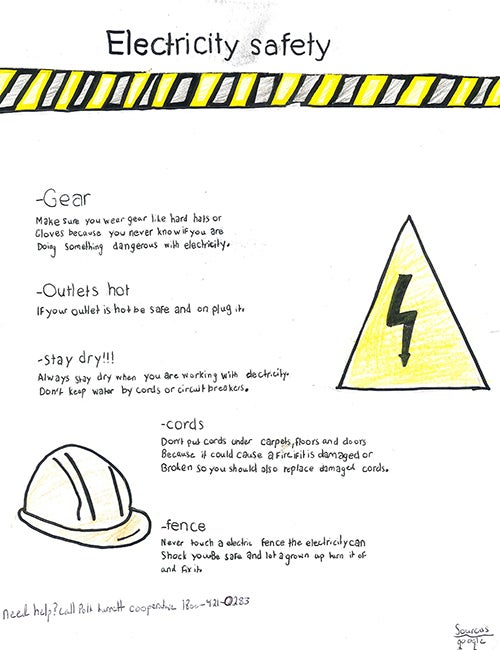 Electricity safety
-Gear
Make sure you wear gear like hard hats or
Gloves because you never know if you are
Doing something dangerous with electricity.
-Outlets hot
If your outlet is hot be safe and on plug it.
-stay dry!!!
Always stay dry when you are working with electricity.
Don't keep water by cords or circuit breakers.
-cords
Don't put cords under carpets, floors and doors
Because it could cause a fire if it is damaged or
Broken so you should also replace damaged cords.
-fence
Never touch a electric fence the electricity can
Shock you. Be safe and let a grown up turn it of
and fix it.
Need help? Call Polk cooperative 1800-421-0283
Sources
google